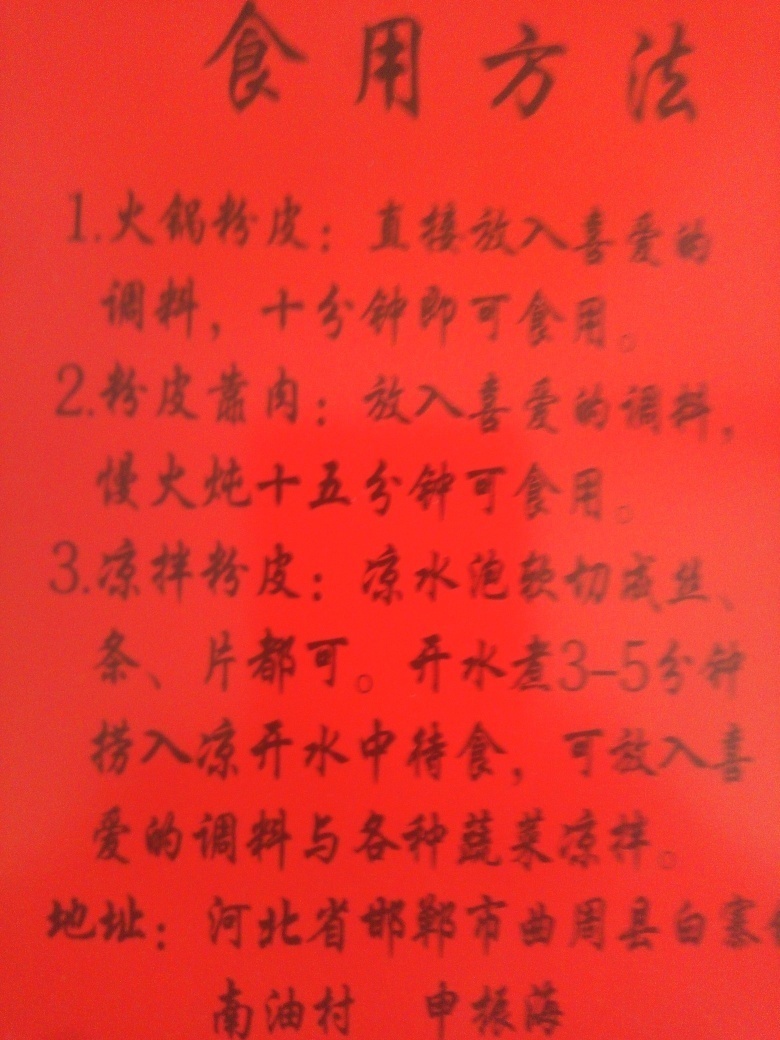 食用方法
1.火锅粉皮：直接放入喜爱的
调料，十分钟即可食用。
2.粉皮肃肉：放入喜爱的调料，
慢火炖十五分钟可食用。
3.凉拌粉皮：凉水泡软切成丝、
条、片都可。开水煮3-5分钟
捞入凉开水中待食，可放入喜
爱的调料与各种蔬菜凉拌。
地址：河北省邯郸市曲周县白寨
南油村 申振海